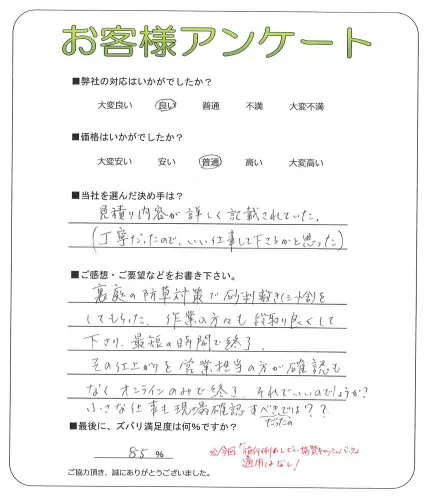 お客様アンケート
■弊社の対応はいかがでしたか?
大変良い 良い 普通 不満 大変不満
■価格はいかがでしたか?
大変安い 安い 普通 高い 大変高い
■当社を選んだ決め手は?
見積り内容が詳しく記載されていた。
(丁寧だったので、いい仕事して下さるかと思った)
■ご感想・ご要望などをお書き下さい。
裏庭の防草対策で砂利敷き
してもらった。作業の方々も段取り良くして
下さり、最短の時間で終了。
その仕上がりを営業担当の方が確認も
なくオンラインのみで終了。それでいいのでしょうか?
小さな仕事も現場確認すべきでは??
だったの
■最後に、ズバリ満足度は何%ですか?
85 %
※今回「
適用はなし!
ご協力頂き、誠にありがとうございました。